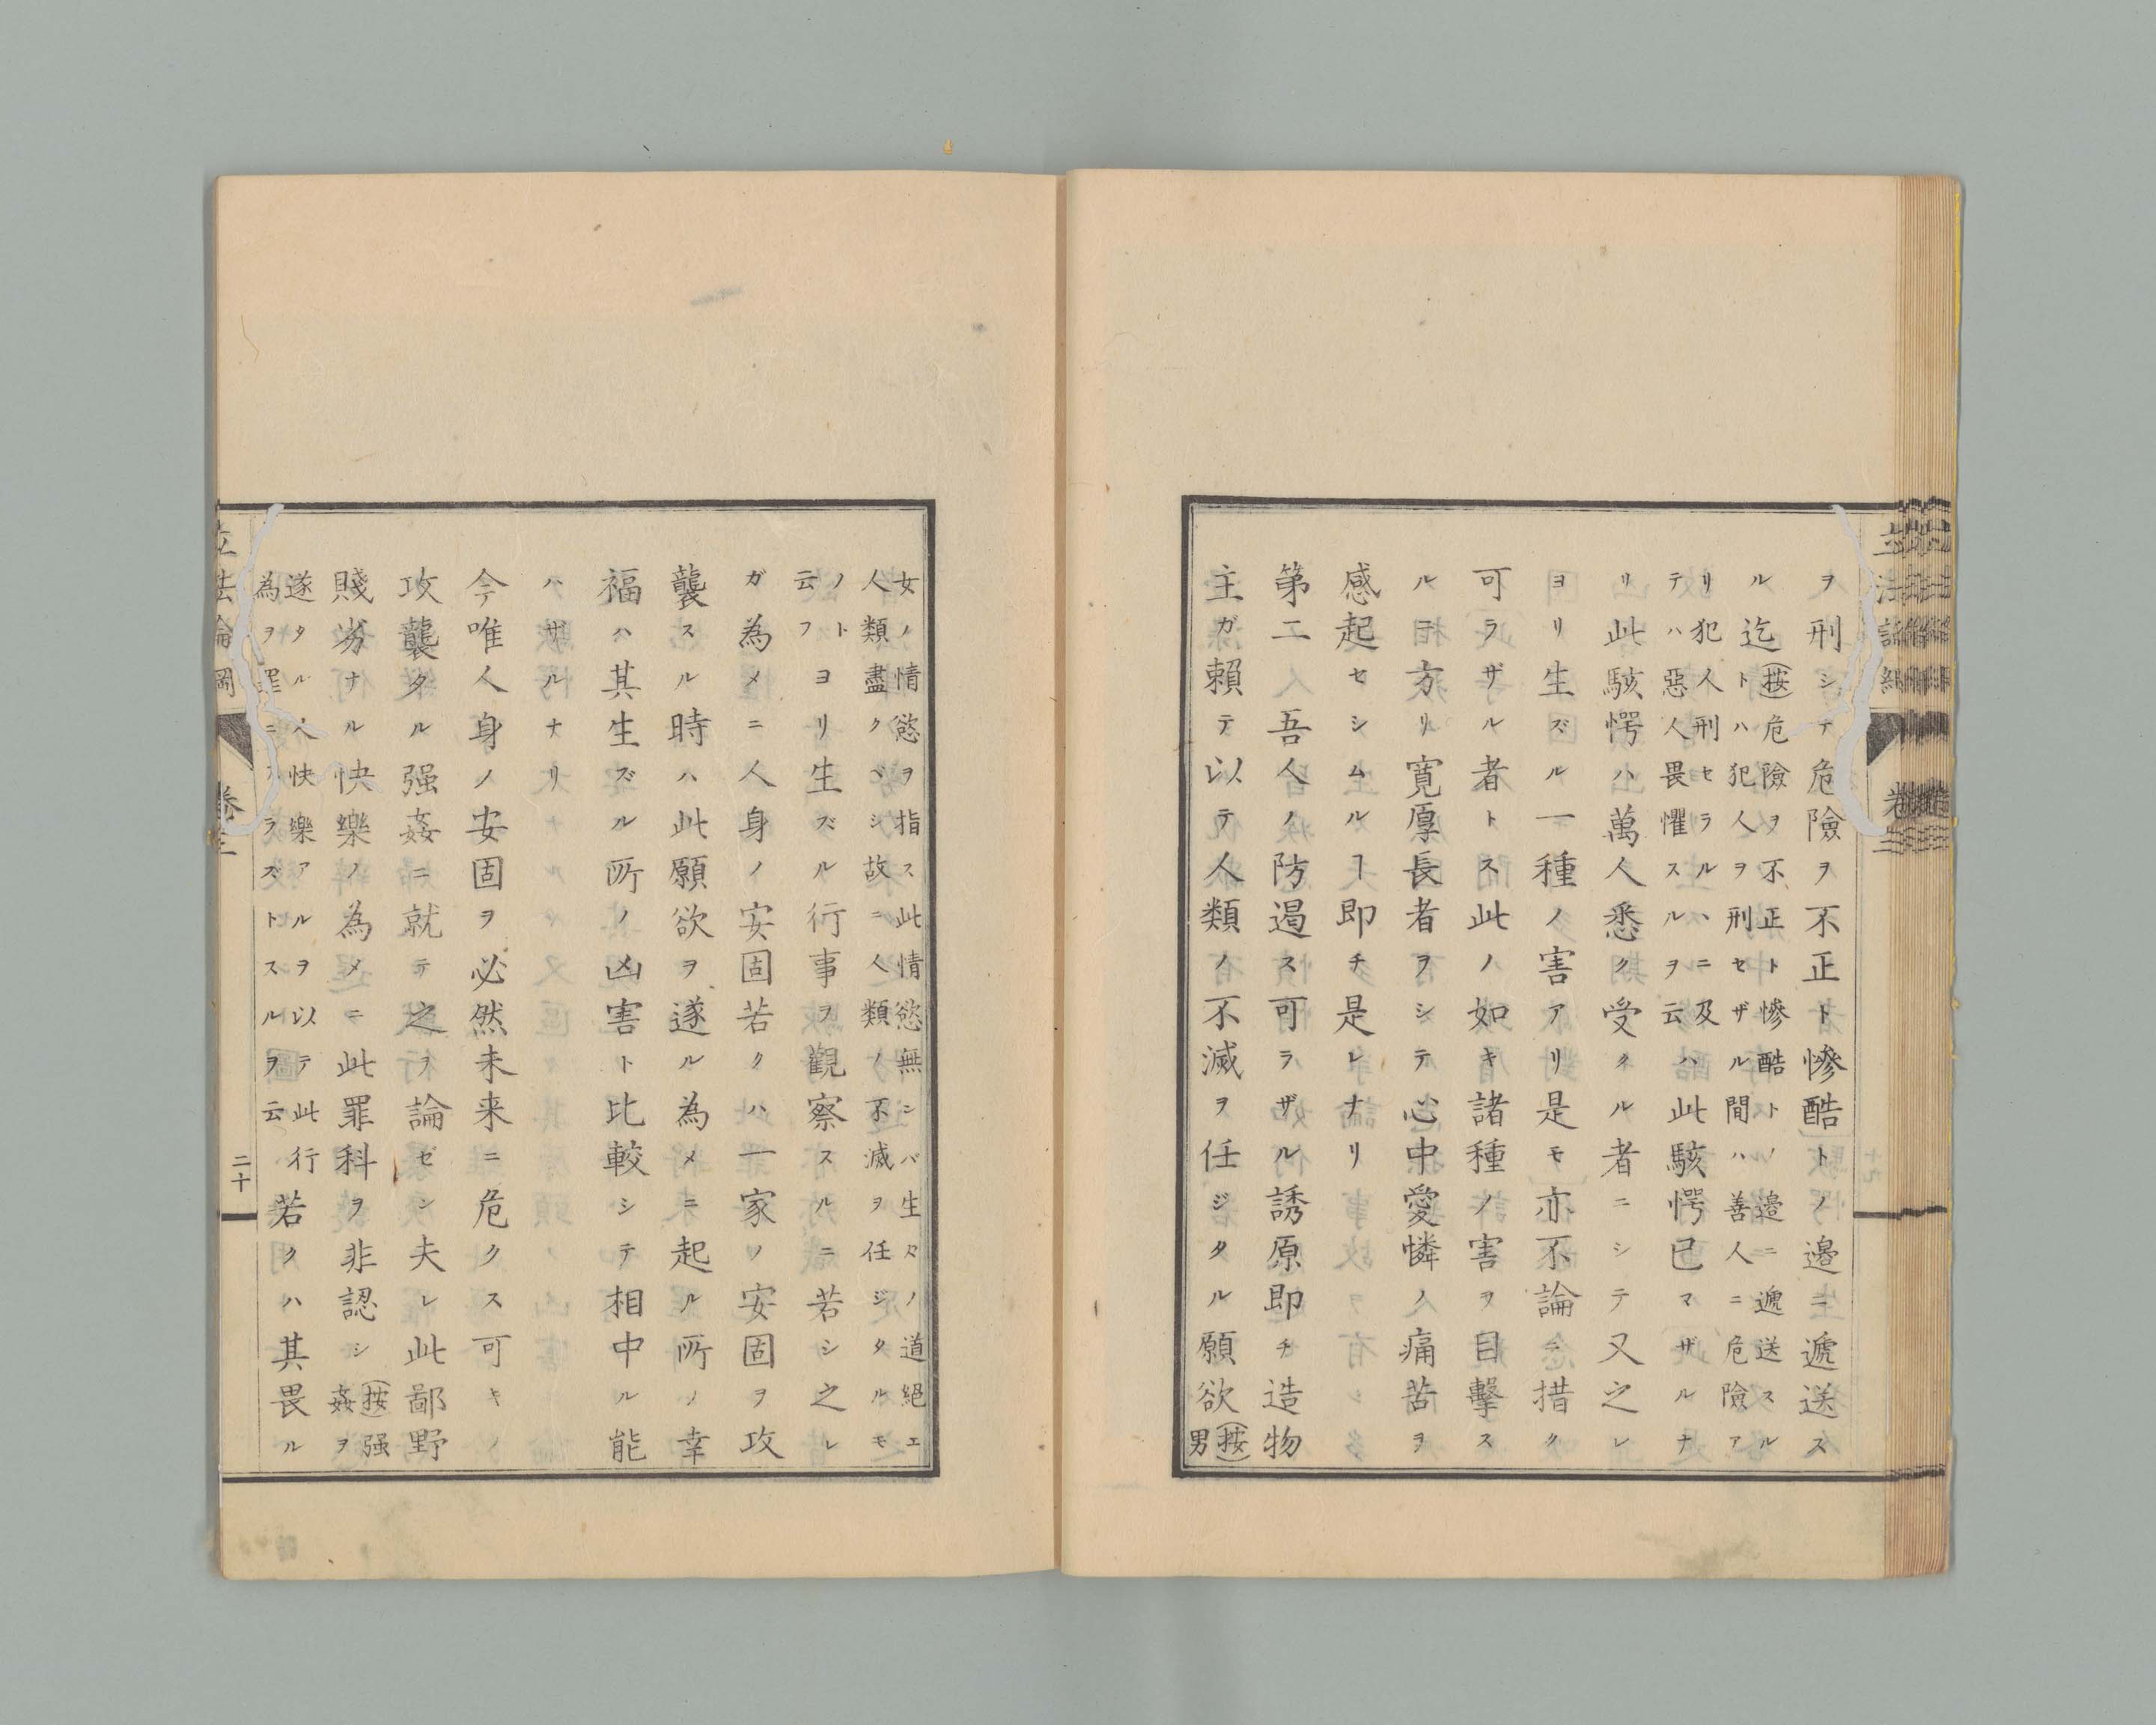 ヲ刑シテ危險ヲ不正ト慘酷トノ邊ニ遞送ス
ル迄(按)危險ヲ不正ト慘酷トノ邊ニ遞送スル
トハ犯人ヲ刑セザル間ハ善人ニ危險ア
リ犯人刑セラルハニ及
テハ惡人畏懼スルヲ云ハ此駭愕已マザルナ
リ此駭愕ハ萬人悉ク受クル者ニシテ又之レ
ヨリ生ズル一種ノ害アリ是モ亦不論ニ措ク
可ラザル者トス此ノ如キ諸種ノ害ヲ目擊ス
ルニ方リ寬厚長者ヲシテ心中愛憐ノ痛苦ヲ
感起セシムルヿ即チ是レナリ
第二人吾人ノ防遏ス可ラザル誘原即チ造物
主ガ賴テ以テ人類ノ不滅ヲ任ジタル願欲(按)男
女ノ情慾ヲ指ス此情慾無シバ生々ノ道絕エ
人類盡クベシ故ニ人類ノ不滅ヲ任ジタルモ
ノト
云フ
ヨリ生ズル行事ヲ觀察スルニ若シ之レ
ガ為メニ人身ノ安固若クハ一家ノ安固ヲ攻
襲スル時ハ此願欲ヲ遂ル為メニ起ル所ノ幸
福ハ其生ズル所ノ凶害ト比較シテ相中ル能
ハザルナリ
今唯人身ノ安固ヲ必然未来ニ危クス可キノ
攻襲タル强姦ニ就テ之ヲ論ゼン夫レ此鄙野
賤劣ナル快樂ノ為メニ此罪科ヲ非認シ(按)强
姦ヲ
遂タル人快樂アルヲ以テ此行
為ヲ罪ニアラズトスルヲ云
若クハ其畏ル
立法論綱
卷三
二十